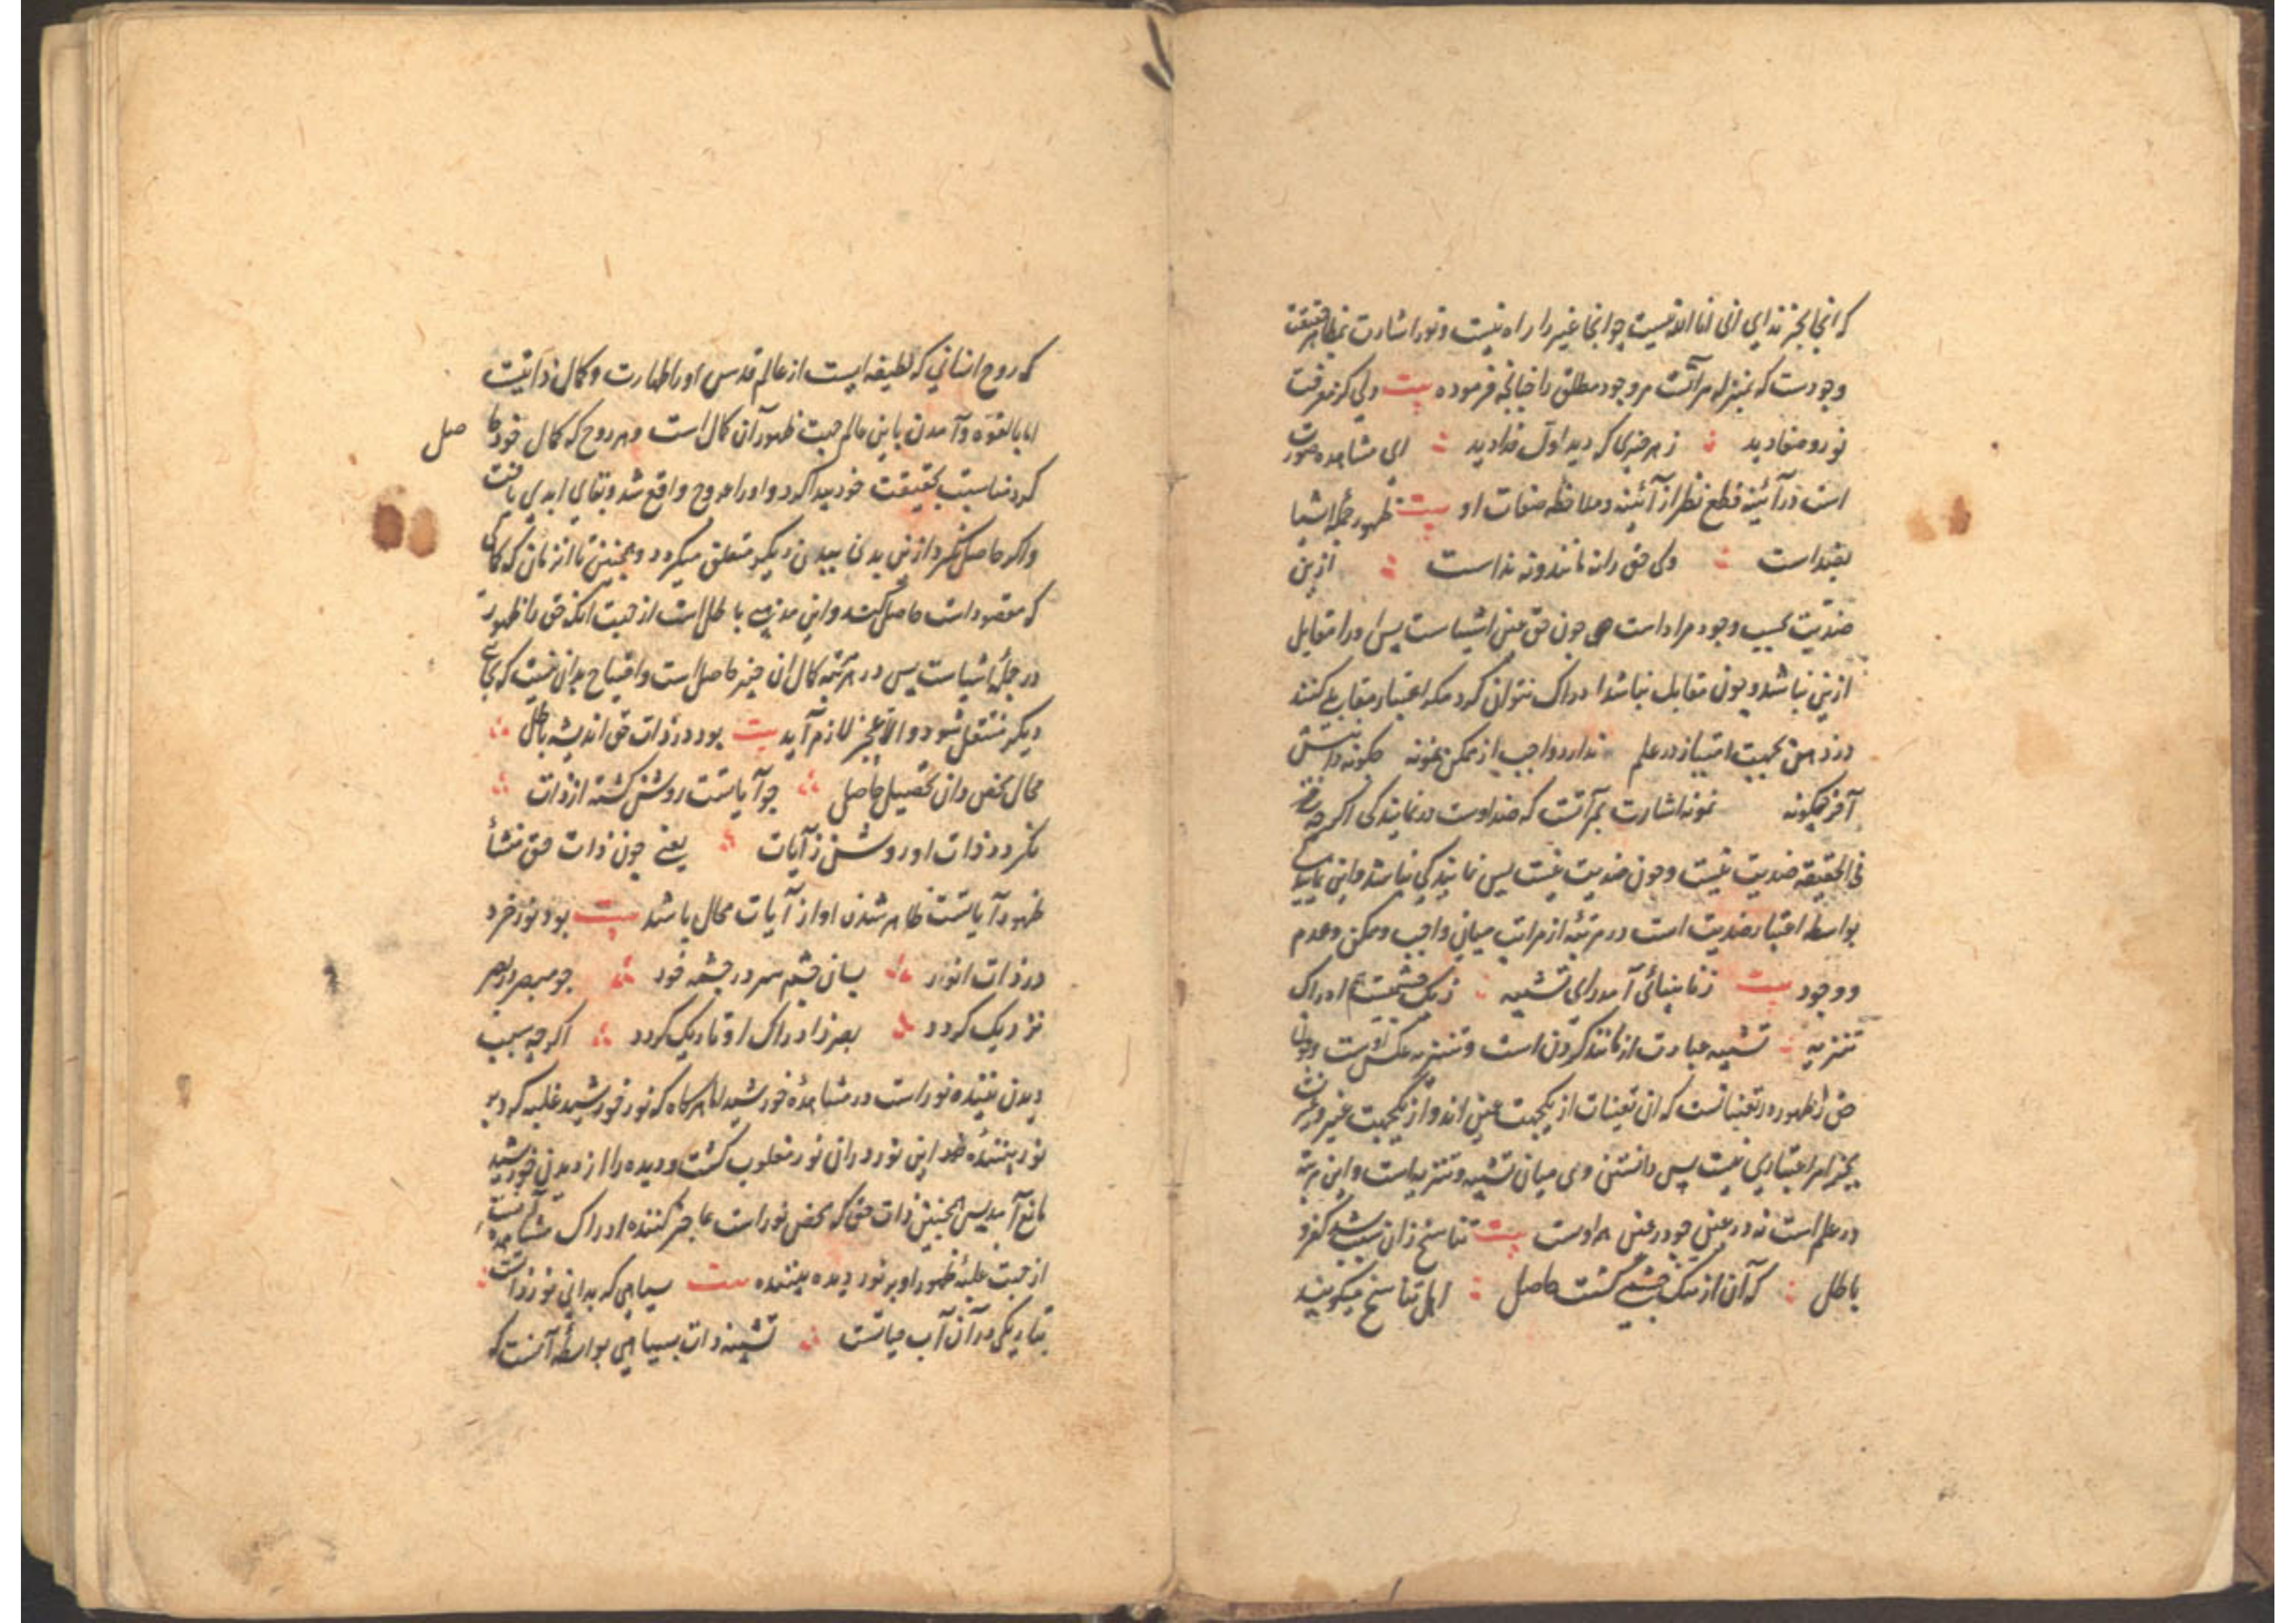 که انجا بجز ندای انی انا الله نیست چو انجا غیر را راه نیست و نور اشارت بمظاهر حقیقت
وجودست که بمنزله مرآتست مر وجود مطلق را چنانچه فرموده بیت دلی کز معرفت
نور و صفا دید ز هر چیزی که دید اول خدا دید ای مشاهده صورت
است در آئینه قطع نظر از آئینه و ملاحظه صفات او بیت ظهور جمله اشیا
بضد است ولی حق را نه مانند و نه نداست ازین
ضدیت بحسب وجود مراد است چون حق عین اشیاست پس او را مقابل
ازین نباشد و چون مقابل نباشد ادراک نتوان کرد مگر اعتبار مقابلی کنند
در ذهن بجهت امتیاز در علم ندارد واجب از ممکن نمونه چگونه دانیش
آخر چگونه نمونه اشارت بمرآتست که ضد اوست در نمایندگی اگر چه
فی الحقیقه ضدیت نیست و چون ضدیت نیست پس نمایندگی نباشد و این
بواسطه اعتبار ضدیت است در مرتبه از مراتب میانی واجب و ممکن و عدم
و وجود بیت ز نابینائی آمد رای تشبیه ز یک چشمیست ادراک
تنزیه تشبیه عبارت از مانند کردن است و تنزیه عکس اوست و چون
حق را ظهور در تعیناتست که ان تعینات از یکجهت عین اند و از یکجهت غیر و
بجز امر اعتباری نیست پس دانستن وی میان تشبیه و تنزیه است و این مرتبه
در علم است نه در عین چو در عین همه اوست بیت تناسخ زان سبب شد کفر و
باطل که آن از تنک چشمی گشت حاصل اهل تناسخ میگویند
که روح انسانی که لطیفه ایست از عالم قدس او را طهارت و کمال ذاتیست
اما بالقوه و آمدن باین عالم جهت ظهور آن کمال است و هر روح که کمال خود حاصل
کرد مناسبت بحقیقت خود پیدا کرد و او را عروج واقع شد و بقای ابدی یافت
و اگر حاصل نکرد ازین بدن ببدن دیگر متعلق میگردد و همچنین تا انزمان که کمالی
که مقصود است حاصل کند و این مذهب باطل است از جهت انکه حق را ظهور
در جمله اشیاست پس در هر مرتبه کمال ان چیز حاصل است و احتیاج بدان نیست که بجای
دیگر منتقل شود و الا عجز لازم آید بیت بود در ذات حق اندیشه باطل
محال محض دان تحصیل حاصل چو آیاتست روشن گشته از ذات
نگردد ذات او روشن ز آیات یعنی چون ذات حق منشأ
ظهور آیاتست ظاهر شدن او از آیات محال باشد بیت بود نور خرد
در ذات انور بسان چشم سر در چشمه خور چو مبصر در بصر
نزدیک گردد بصر ز ادراک او تاریک گردد اگر چه سبب
دیدن بیننده نور است در مشاهده خورشید اما هرگاه که نور خورشید غلبه کرد بر
نور بیننده این نور در ان نور مغلوب گشت و دیده را از دیدن خورشید
مانع آمد پس همچنین ذات حق که محض نور است عاجز کننده ادراک مشاهده
از جهت غلبه ظهور او بر نور دیده بیننده بیت سیاهی که بدانی نور ذاتست
بتاریکی در آن آب حیاتست تشبیه ذات بسیاهی بواسطه آنست که